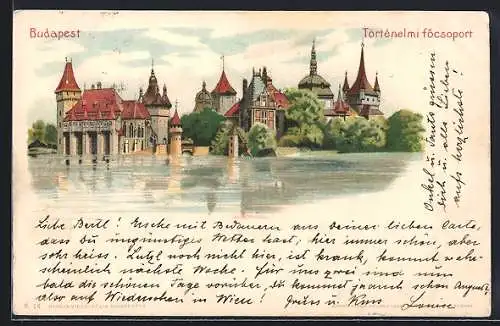 Budapest
Történelmi főcsoport
Liebe Bertl! Ersehe mit Bedauern aus Deiner lieben Carte,
dass Du ungünstiges Wetter hast, hier immer schön, aber
sehr heiss. Luzl noch nicht hier, ist krank, kommt wahr-
scheinlich nächste Woche. Für uns zwei sind nun
bald die schönen Tage vorüber, du kommst ja auch schon August,
also auf Wiedersehen in Wien! Gruss u. Kuss Louise
Onkel u. Tante grüssen
Dich u. alle Lieben
aufs herzlichste!